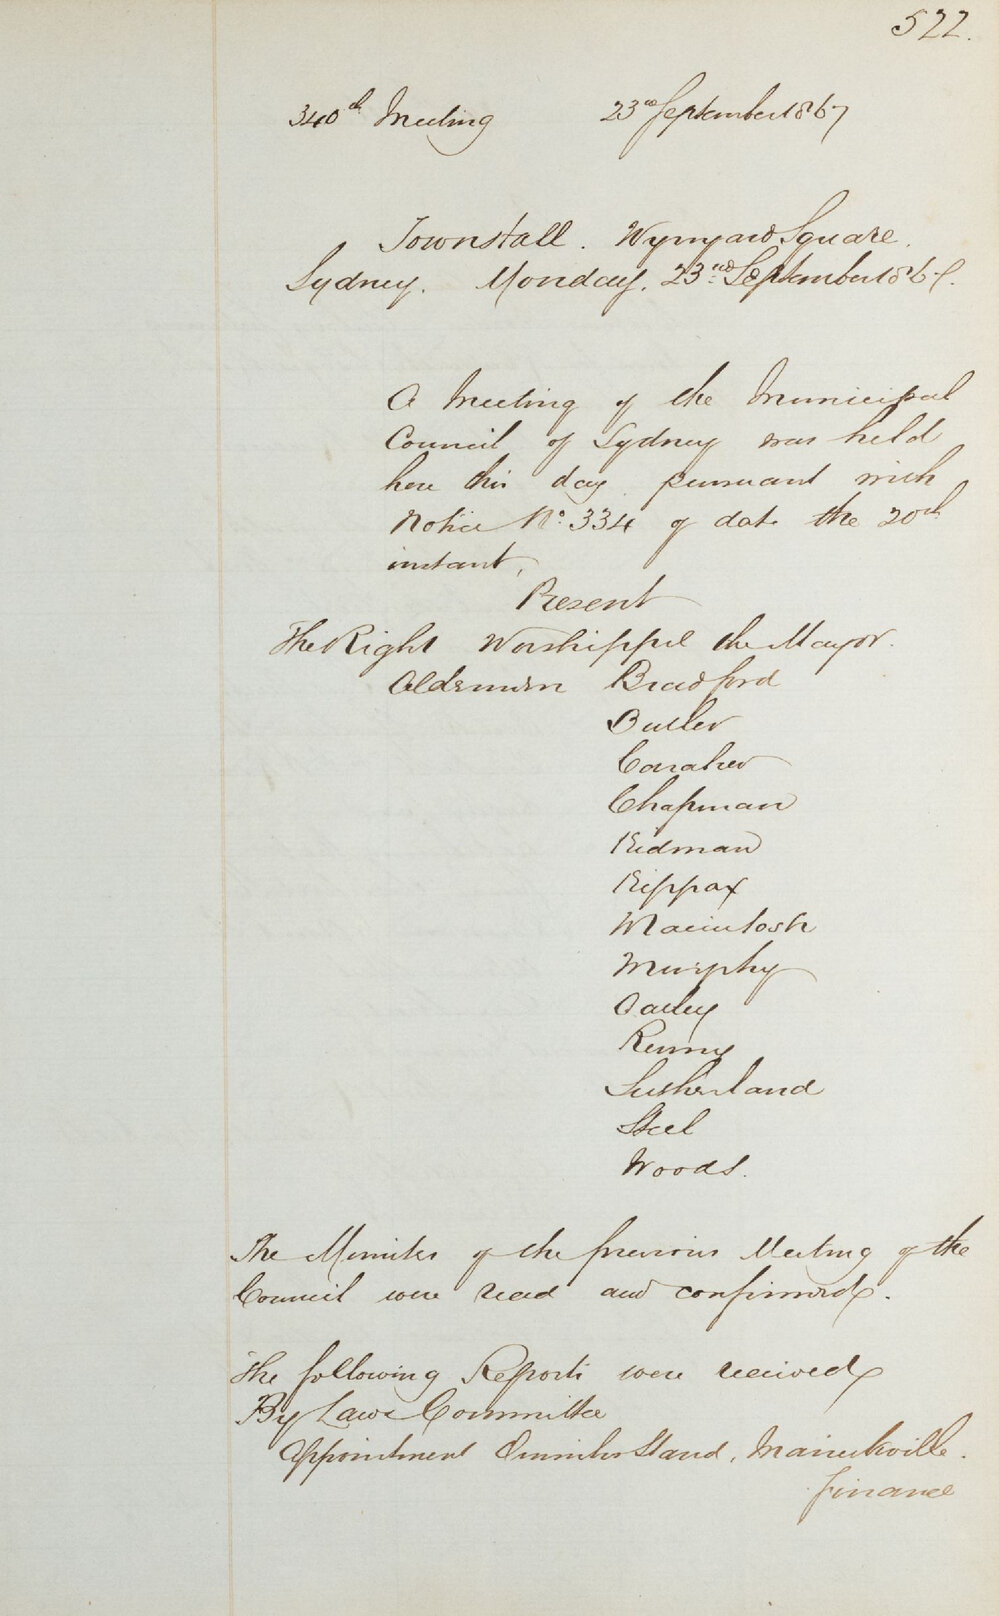 522.
340th Meeting 23rd September 1867
Townhall. Wynyard Square.
Sydney. Monday. 23rd September 1867.
A Meeting of the Municipal
Council of Sydney was held
here this day pursuant with
Notice No. 334 of date the 20th
instant,
Present
The Right Worshippful the Mayor.
Aldermen Bradford
Butler
Caraher
Chapman
Kidman
Kippax
Macintosh
Murphy
Oatley
Renny
Sutherland
Steel
Woods.
The Minutes of the previous Meeting of the
Council were read and confirmed.
The following Reports were received
By Laws Committee
Appointment Omnibus Stand, Marrickville.
Finance